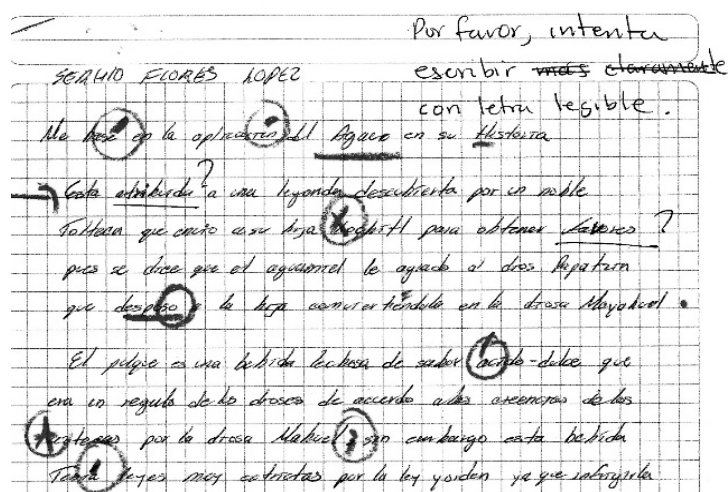 Por favor, intenta
escribir más claramente
con letra legible.
SERGIO FLORES LOPEZ
Me base en la aplicación del Agave en su Historia
Esta atribuida a una leyenda descubierta por un noble
Tolteca que envio a su hija Xochitl para obtener favores
pues se dice que el aguamiel le agrado al dios
que desposo a la hija convirtiéndola en la diosa Mayahuel.
El pulque es una bebida lechosa de sabor acido-dulce que
era un regalo de los dioses de acuerdo a las creencias de los
Aztecas por la diosa sin embargo esta bebida
Tenia leyes muy estrictas por la ley y orden ya que